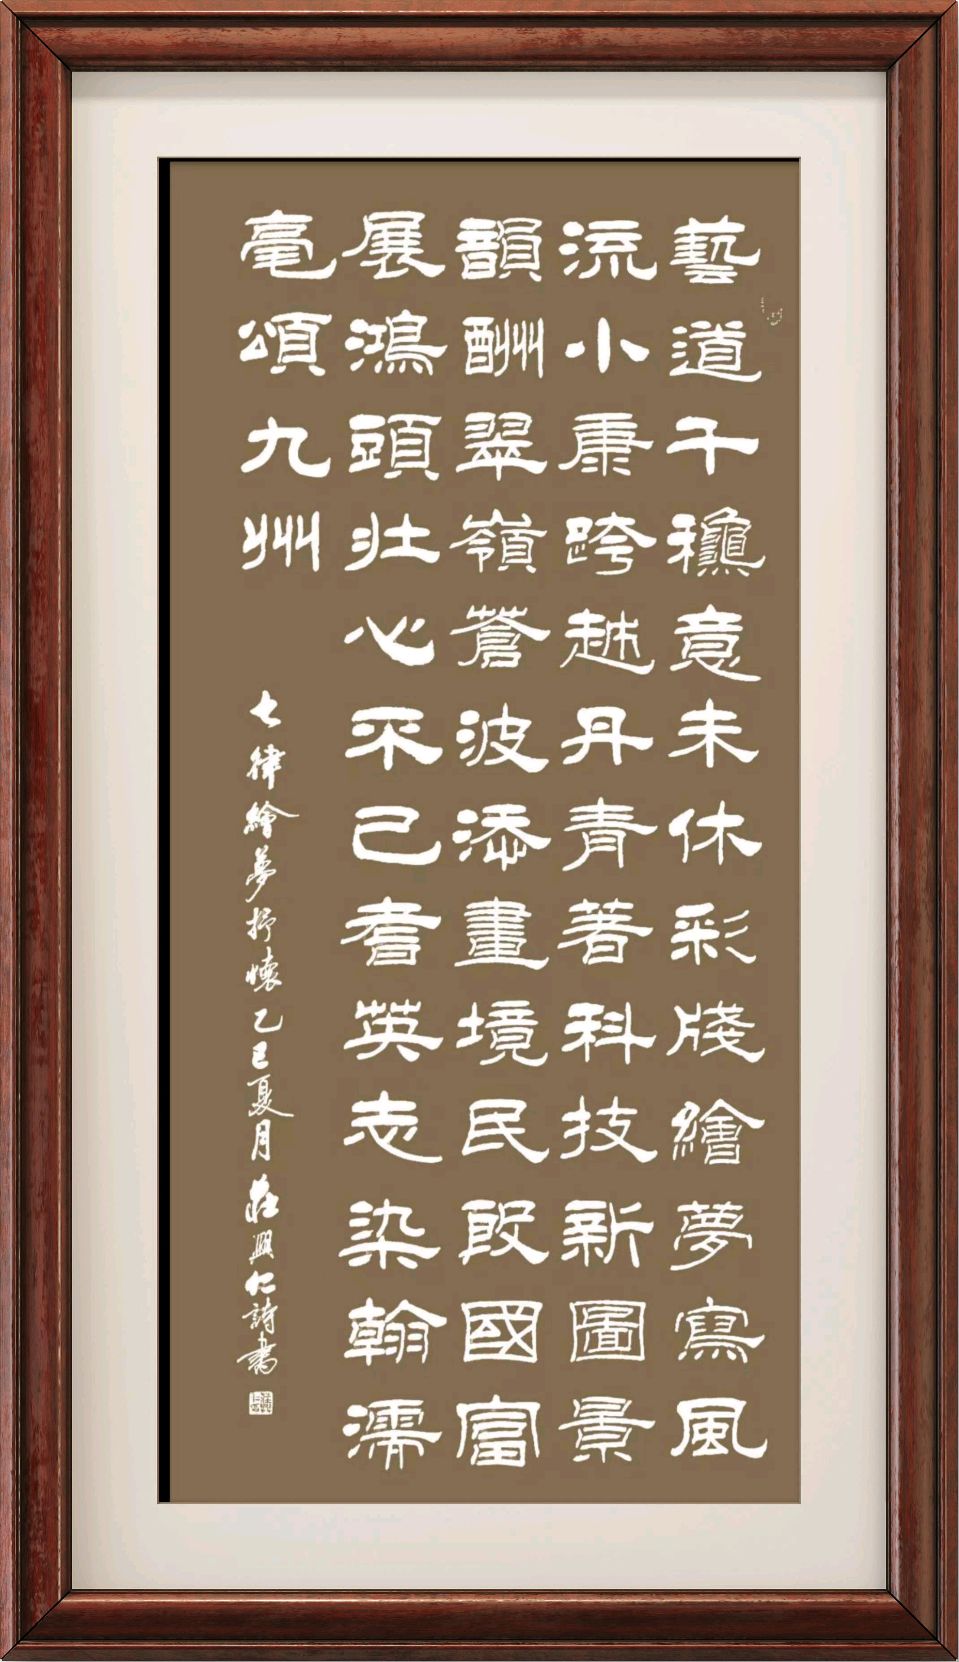 藝道千龝意未休彩牋繪夢寫風
流小康跨越丹青著科技新圖景
韻酬翠嶺蒼波添畫境民殷國富
展鴻頭壯心不已耆英志染翰濡
毫頌九州
七律繪夢抒懷乙巳夏月莊興仁詩書